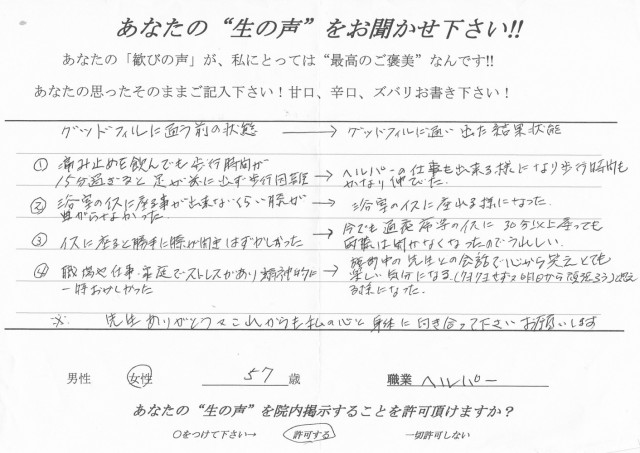 あなたの“生の声”をお聞かせ下さい!!
あなたの「歓びの声」が、私にとっては“最高のご褒美”なんです!!
あなたの思ったそのままご記入下さい！甘口、辛口、ズバリお書き下さい！
グッドフィルに通う前の状態 → グッドフィルに通い出た結果状態
① 痛み止めを飲んでも歩行時間が
15分過ぎると足が前に出ず歩行困難 → ヘルパーの仕事も出来る様になり歩行時間も
かなり伸びた。
② 浴室のイスに座る事が出来ないくらい膝が
曲がらなかった。 → 浴室のイスに座れる様になった。
③ イスに座ると勝手に膝が開きはずかしかった → 今でも通院帯等のイスに30分以上座っても
両膝は開かなくなったのでうれしい。
④ 職場や仕事、家庭でストレスがあり精神的に
一時おかしかった → 施術中の先生との会話で心から笑えとても
楽しい気分になる。(クヨクヨせず明日から頑張ろう)と思える様になった。
※ 先生ありがとう これからも私の心と身体に向き合って下さい お願いします
男性 女性 57 歳 職業 ヘルパー
あなたの“生の声”を院内掲示することを許可頂けますか？
○をつけて下さい→ 許可する 一切許可しない